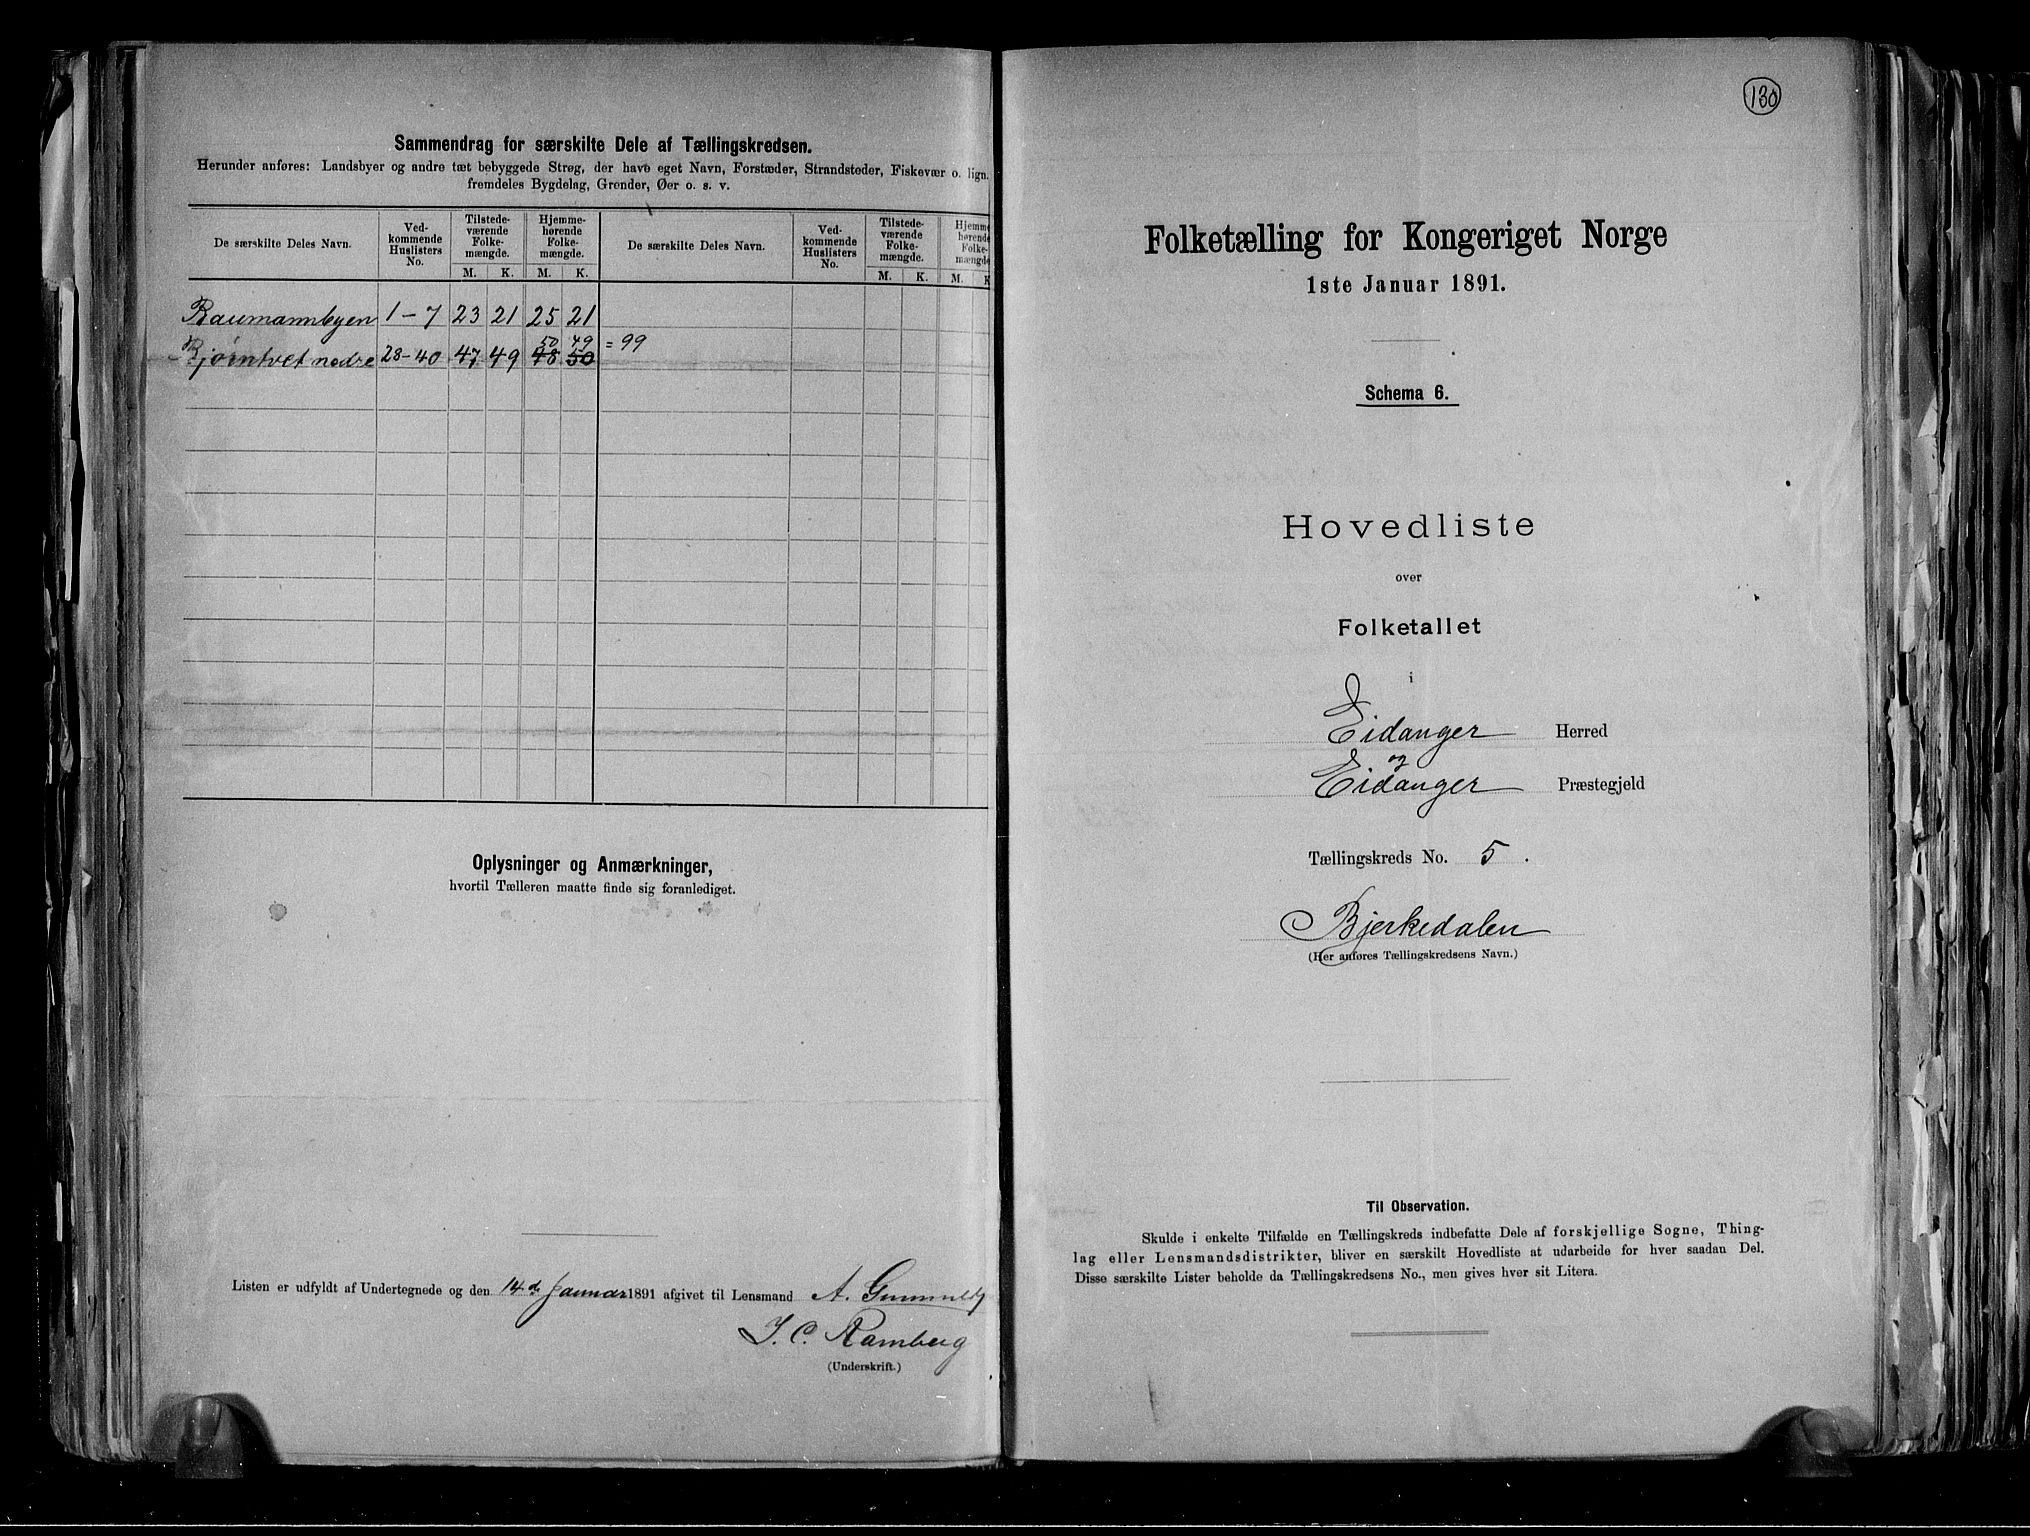 Sammendrag for særskilte Dele af Tællingskredsen.
Herunder anføres: Landsbyer og andre tæt bebyggede Strøg, der have eget Navn, Forstæder, Strandsteder, Fiskevær o. lign.
fremdeles Bygdelag, Grender, Øer o. s. v.
De særskilte Deles Navn. Ved-kommende Huslisters No. Tilstede-værende Folke-mængde. Hjemme-hørende Folke-mængde. De særskilte Deles Navn. Ved-kommende Huslisters No. Tilstede-værende Folke-mængde. Hjemme-hørende Folke-mængde
M. K. M. K. M. K. M. K
Baumannbyen 1-7 23 21 25 21
50 49
Bjørntvet nedre 28-40 47 49 48 50 = 99
Oplysninger og Anmærkninger,
hvortil Tælleren maatte finde sig foranlediget.
Listen er udfyldt af Undertegnede og den 14de Januar 1891 afgivet til Lensmand A.
J. C. Ramberg
(Underskrift.)
130
Folketælling for Kongeriget Norge
1ste Januar 1891.
Schema 6.
Hovedliste
over
Folketallet
i
Eidanger Herred
og
Eidanger Præstegjeld
Tællingskreds No. 5.
Bjerkedalen
(Her anføres Tællingskredsens Navn.)
Til Observation.
Skulde i enkelte Tilfælde en Tællingskreds indbefatte Dele af forskjellige Sogne, Thing-
lag eller Lensmandsdistrikter, bliver en særskilt Hovedliste at udarbeide for hver saadan Del.
Disse særskilte Lister beholde da Tællingskredsens No., men gives hver sit Litera.